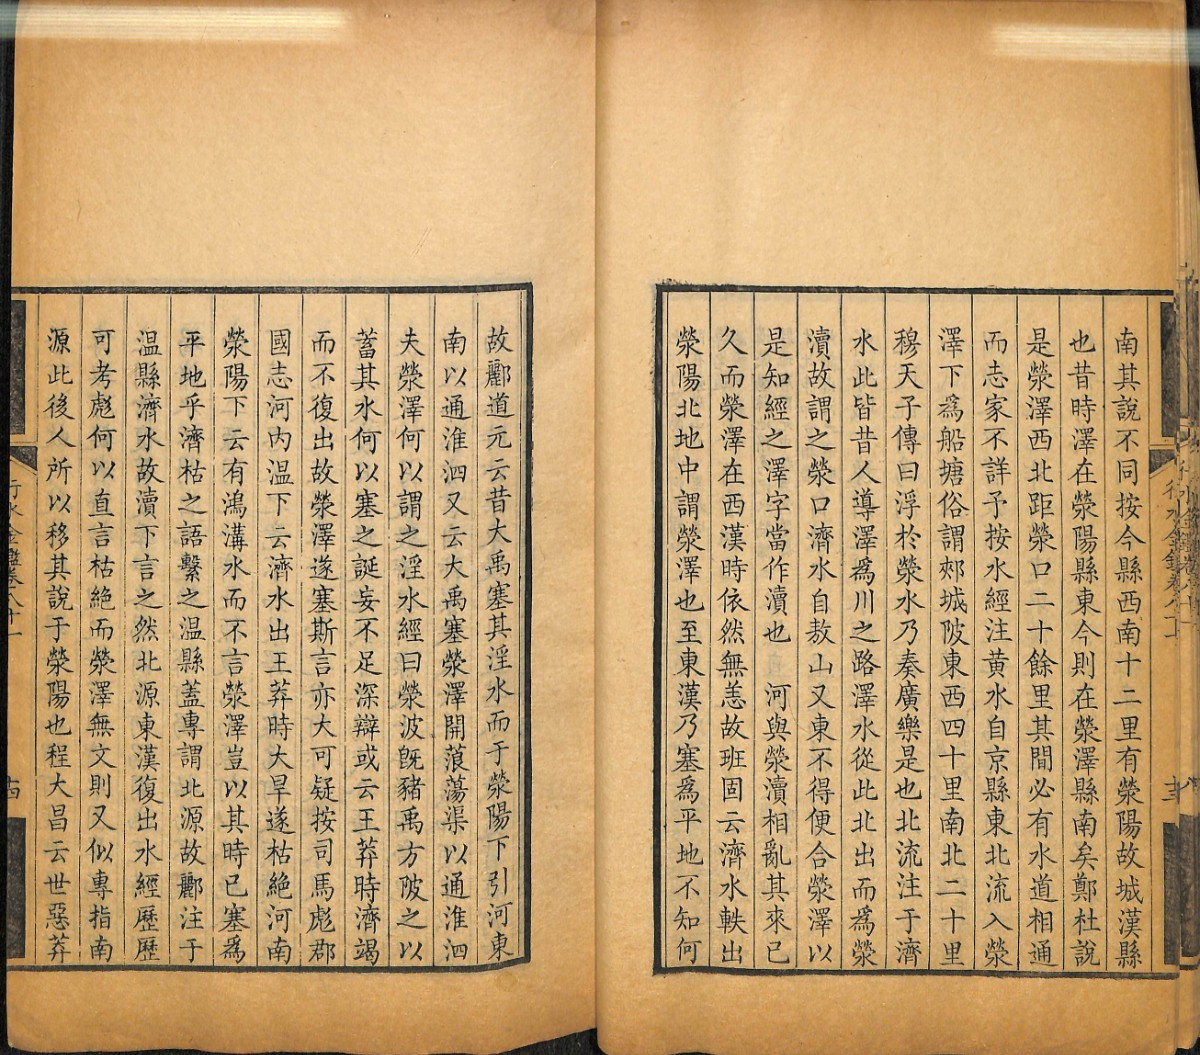 南其說不同按今縣西南十二里有滎陽故城漢縣
也昔時澤在滎陽縣東今則在滎澤縣南矣鄭杜說
是滎澤西北距滎口二十餘里其間必有水道相通
而志家不詳予按水經注黄水自京縣東北流入滎
澤下爲船塘俗謂郟城陂東西四十里南北二十里
穆天子傳曰浮於滎水乃奏廣樂是也北流注于濟
水此皆昔人導澤爲川之路澤水從此北出而爲滎
瀆故謂之滎口濟水自敖山又東不得便合滎澤以
是知經之澤字當作瀆也　河與滎瀆相亂其來已
久而滎澤在西漢時依然無恙故班固云濟水軼出
滎陽北地中謂滎澤也至東漢乃塞爲平地不知何
故酈道元云昔大禹塞其淫水而于滎陽下引河東
南以通淮泗又云大禹塞滎澤開蒗蕩渠以通淮泗
夫滎澤何以謂之淫水經曰滎波旣豬禹方陂之以
蓄其水何以塞之誕妄不足深辯或云王莽時濟竭
而不復出故滎澤遂塞斯言亦大可疑按司馬彪郡
國志河内温下云濟水出王莽時大旱遂枯絶河南
滎陽下云有鴻溝水而不言滎澤豈以其時已塞爲
平地乎濟枯之語繫之温縣蓋專謂北源故酈注于
温縣濟水故瀆下言之然北源東漢復出水經歷歷
可考彪何以直言枯絶而滎澤無文則又似專指南
源此後人所以移其說于滎陽也程大昌云世惡莽
行水金鑑卷八十一
十四